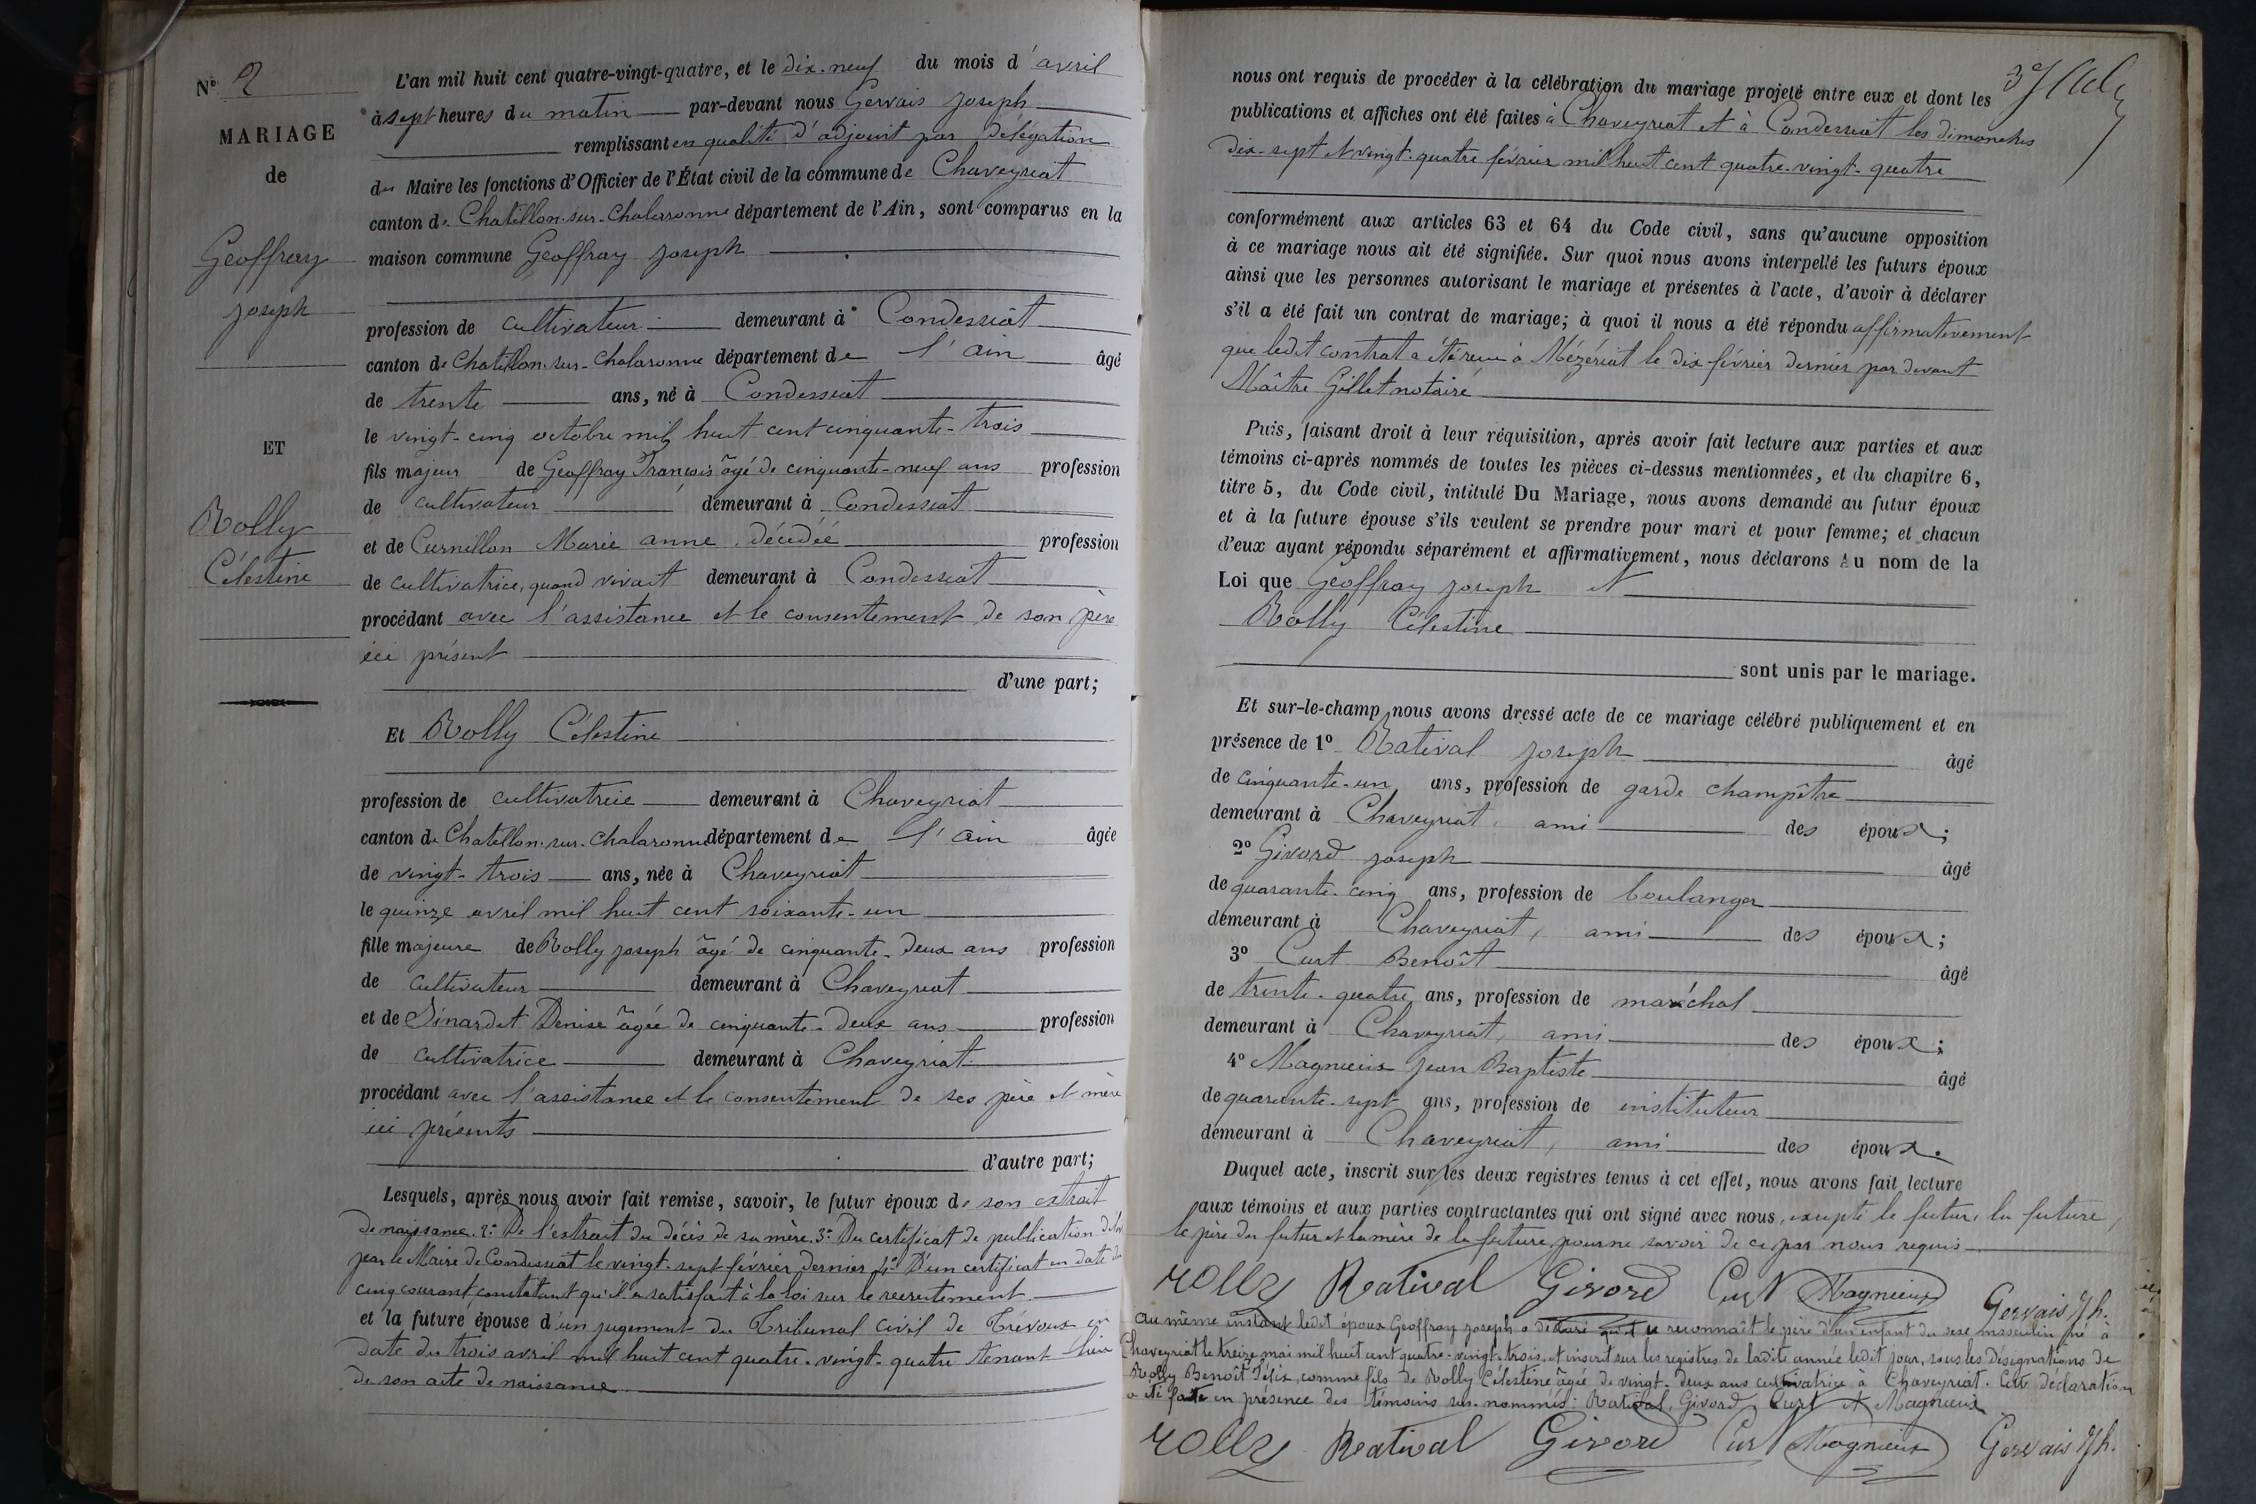 N° 2
MARIAGE
de
Geoffray
Joseph
ET
Rolly
Célestine
L'an mil huit cent quatre-vingt-quatre, et le dix-neuf du mois d'avril
à sept heures du matin par-devant nous Gervais Joseph
remplissant en qualité d'adjoint par délégation
du Maire les fonctions d'Officier de l'État civil de la commune de Chaveyriat
canton de Chatillon-sur-Chalaronne département de l'Ain, sont comparus en la
maison commune Geoffray Joseph
profession de cultivateur demeurant à Condessiat
canton de Chatillon-sur-Chalaronne département de l'Ain âgé
de trente ans, né à Condessiat
le vingt-cinq octobre mil huit cent cinquante-trois
fils majeur de Geoffray François âgé de cinquante-neuf ans profession
de cultivateur demeurant à Condessiat
et de Curnillon Marie Anne décédée profession
de cultivatrice, quand vivait demeurant à Condessiat
procédant avec l'assistance et le consentement de son père
ici présent
d'une part;
Et Rolly Célestine
profession de cultivatrice demeurant à Chaveyriat
canton de Chatillon-sur-Chalaronne département de l'Ain âgée
de vingt-trois ans, née à Chaveyriat
le quinze avril mil huit cent soixante-un
fille majeure de Rolly Joseph âgé de cinquante-deux ans profession
de cultivateur demeurant à Chaveyriat
et de Sinardet Denise âgée de cinquante-deux ans profession
de cultivatrice demeurant à Chaveyriat
procédant avec l'assistance et le consentement de ses père et mère
ici présents
d'autre part;
Lesquels, après nous avoir fait remise, savoir, le futur époux de son extrait
de naissance. 2° De l'extrait du décès de sa mère. 3° Du certificat de publication
par le Maire de Condessiat le vingt-sept février dernier 4° D'un certificat en date du
cinq courant constatant qu'il a satisfait à la loi sur le recrutement
et la future épouse d'un jugement du Tribunal Civil de Trévoux en
date du trois avril mil huit cent quatre-vingt-quatre tenant lieu
de son acte de naissance
nous ont requis de procéder à la célébration du mariage projeté entre eux et dont les
publications et affiches ont été faites à Chaveyriat et à Condessiat les dimanches
dix-sept et vingt-quatre février mil huit cent quatre-vingt-quatre
conformément aux articles 63 et 64 du Code civil, sans qu'aucune opposition
à ce mariage nous ait été signifiée. Sur quoi nous avons interpellé les futurs époux
ainsi que les personnes autorisant le mariage et présentes à l'acte, d'avoir à déclarer
s'il a été fait un contrat de mariage; à quoi il nous a été répondu affirmativement
que ledit contrat a été reçu à Mézériat le dix février dernier par devant
Maître Gillet notaire
Puis, faisant droit à leur réquisition, après avoir fait lecture aux parties et aux
témoins ci-après nommés de toutes les pièces ci-dessus mentionnées, et du chapitre 6,
titre 5, du Code civil, intitulé Du Mariage, nous avons demandé au futur époux
et à la future épouse s'ils veulent se prendre pour mari et pour femme; et chacun
d'eux ayant répondu séparément et affirmativement, nous déclarons Au nom de la
Loi que Geoffray Joseph et
Rolly Célestine
sont unis par le mariage.
Et sur-le-champ nous avons dressé acte de ce mariage célébré publiquement et en
présence de 1° Ratival Joseph âgé
de cinquante-un ans, profession de garde champêtre
demeurant à Chaveyriat, ami des époux;
2° Givord Joseph âgé
de quarante-cinq ans, profession de boulanger
demeurant à Chaveyriat, ami des époux;
3° Curt Benoît âgé
de trente-quatre ans, profession de maréchal
demeurant à Chaveyriat, ami des époux;
4° Magnieux Jean Baptiste âgé
de quarante-sept ans, profession de instituteur
demeurant à Chaveyriat, ami des époux.
Duquel acte, inscrit sur les deux registres tenus à cet effet, nous avons fait lecture
aux témoins et aux parties contractantes qui ont signé avec nous, excepté le futur, la future,
le père du futur et la mère de la future, pour ne savoir de ce par nous requis
rolly Reatival Givord Curt Magnieux Gervais Jh.
Au même instant ledit époux Geoffray Joseph a déclaré qu'il se reconnaît le père d'un enfant du sexe masculin né à
Chaveyriat le treize mai mil huit cent quatre-vingt-trois, et inscrit sur les registres de ladite année ledit jour, sous les désignations de
Rolly Benoît Félix, comme fils de Rolly Célestine âgée de vingt-deux ans cultivatrice à Chaveyriat. Cette déclaration
a été faite en présence des témoins sus-nommés: Ratival, Givord, Curt et Magnieux
rolly Reatival Givord Curt Magnieux Gervais Jh.